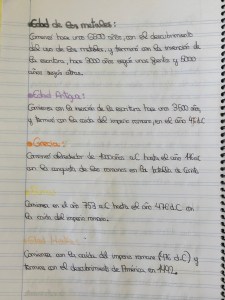 Edad de los metales:
Comenzó hace unos 6000 años, con el descubrimiento
del uso de los metales, y terminó con la invención de
la escritura, hace 3000 años según unos y 5000
años según otros.
Edad Antigua:
Comienza con la creación de la escritura hace unos 3500 años,
y terminó con la caída del imperio romano, en el 476 d.C
Grecia:
Comenzó alrededor de 1200 años a.C hasta el año 146 a.C
con la conquista de los romanos en la batalla de Corinto.
Comienza en el año 753 a.C hasta el año 476 d.C con
la caída del imperio romano.
Edad Media:
Comienza con la caída del imperio romano (476 d.C) y
termina con el descubrimiento de América en 1492.